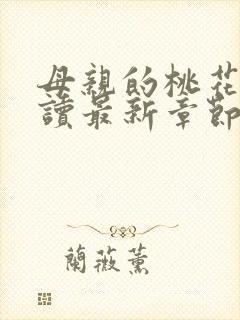 母親的桃花
讀最新章節
蘭薇薰